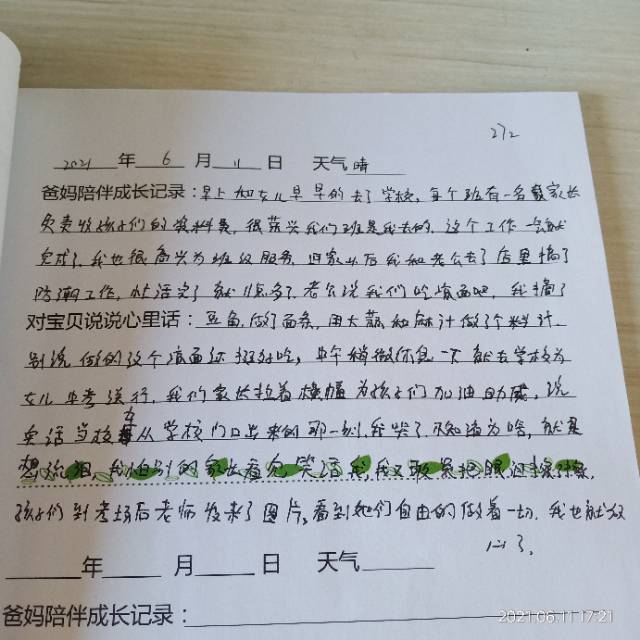 272
2021年 6 月 11 日 天气 晴
爸妈陪伴成长记录：早上和女儿早早的去了学校，每个班有一名家长
负责收孩子们的资料费，很荣兴我们班是我去的，这个工作一会就
完成了，我也很高兴为班级服务，回家以后我和老公去了店里搞了
防潮工作，忙活完了就11点多了，老公说我们吃凉面吧，我搞了
对宝贝说说心里话：豆角，做了面条，用大蒜和麻汁做了个料汁，
别说做的这个凉面还挺好吃，中午稍微休息一下就去学校为
女儿中考送行，我们家长拉着横幅为孩子们加油助威，说
实话当校车从学校门口出来的那一刻，我哭了，不知道为啥，就是
想流泪，我怕别的家长看见笑话我，我又
孩子们到考场后老师发来了图片，看到她们自由的做着一切，我也就放
心了。
年 月 日 天气
爸妈陪伴成长记录：
2021.06.11 17:21